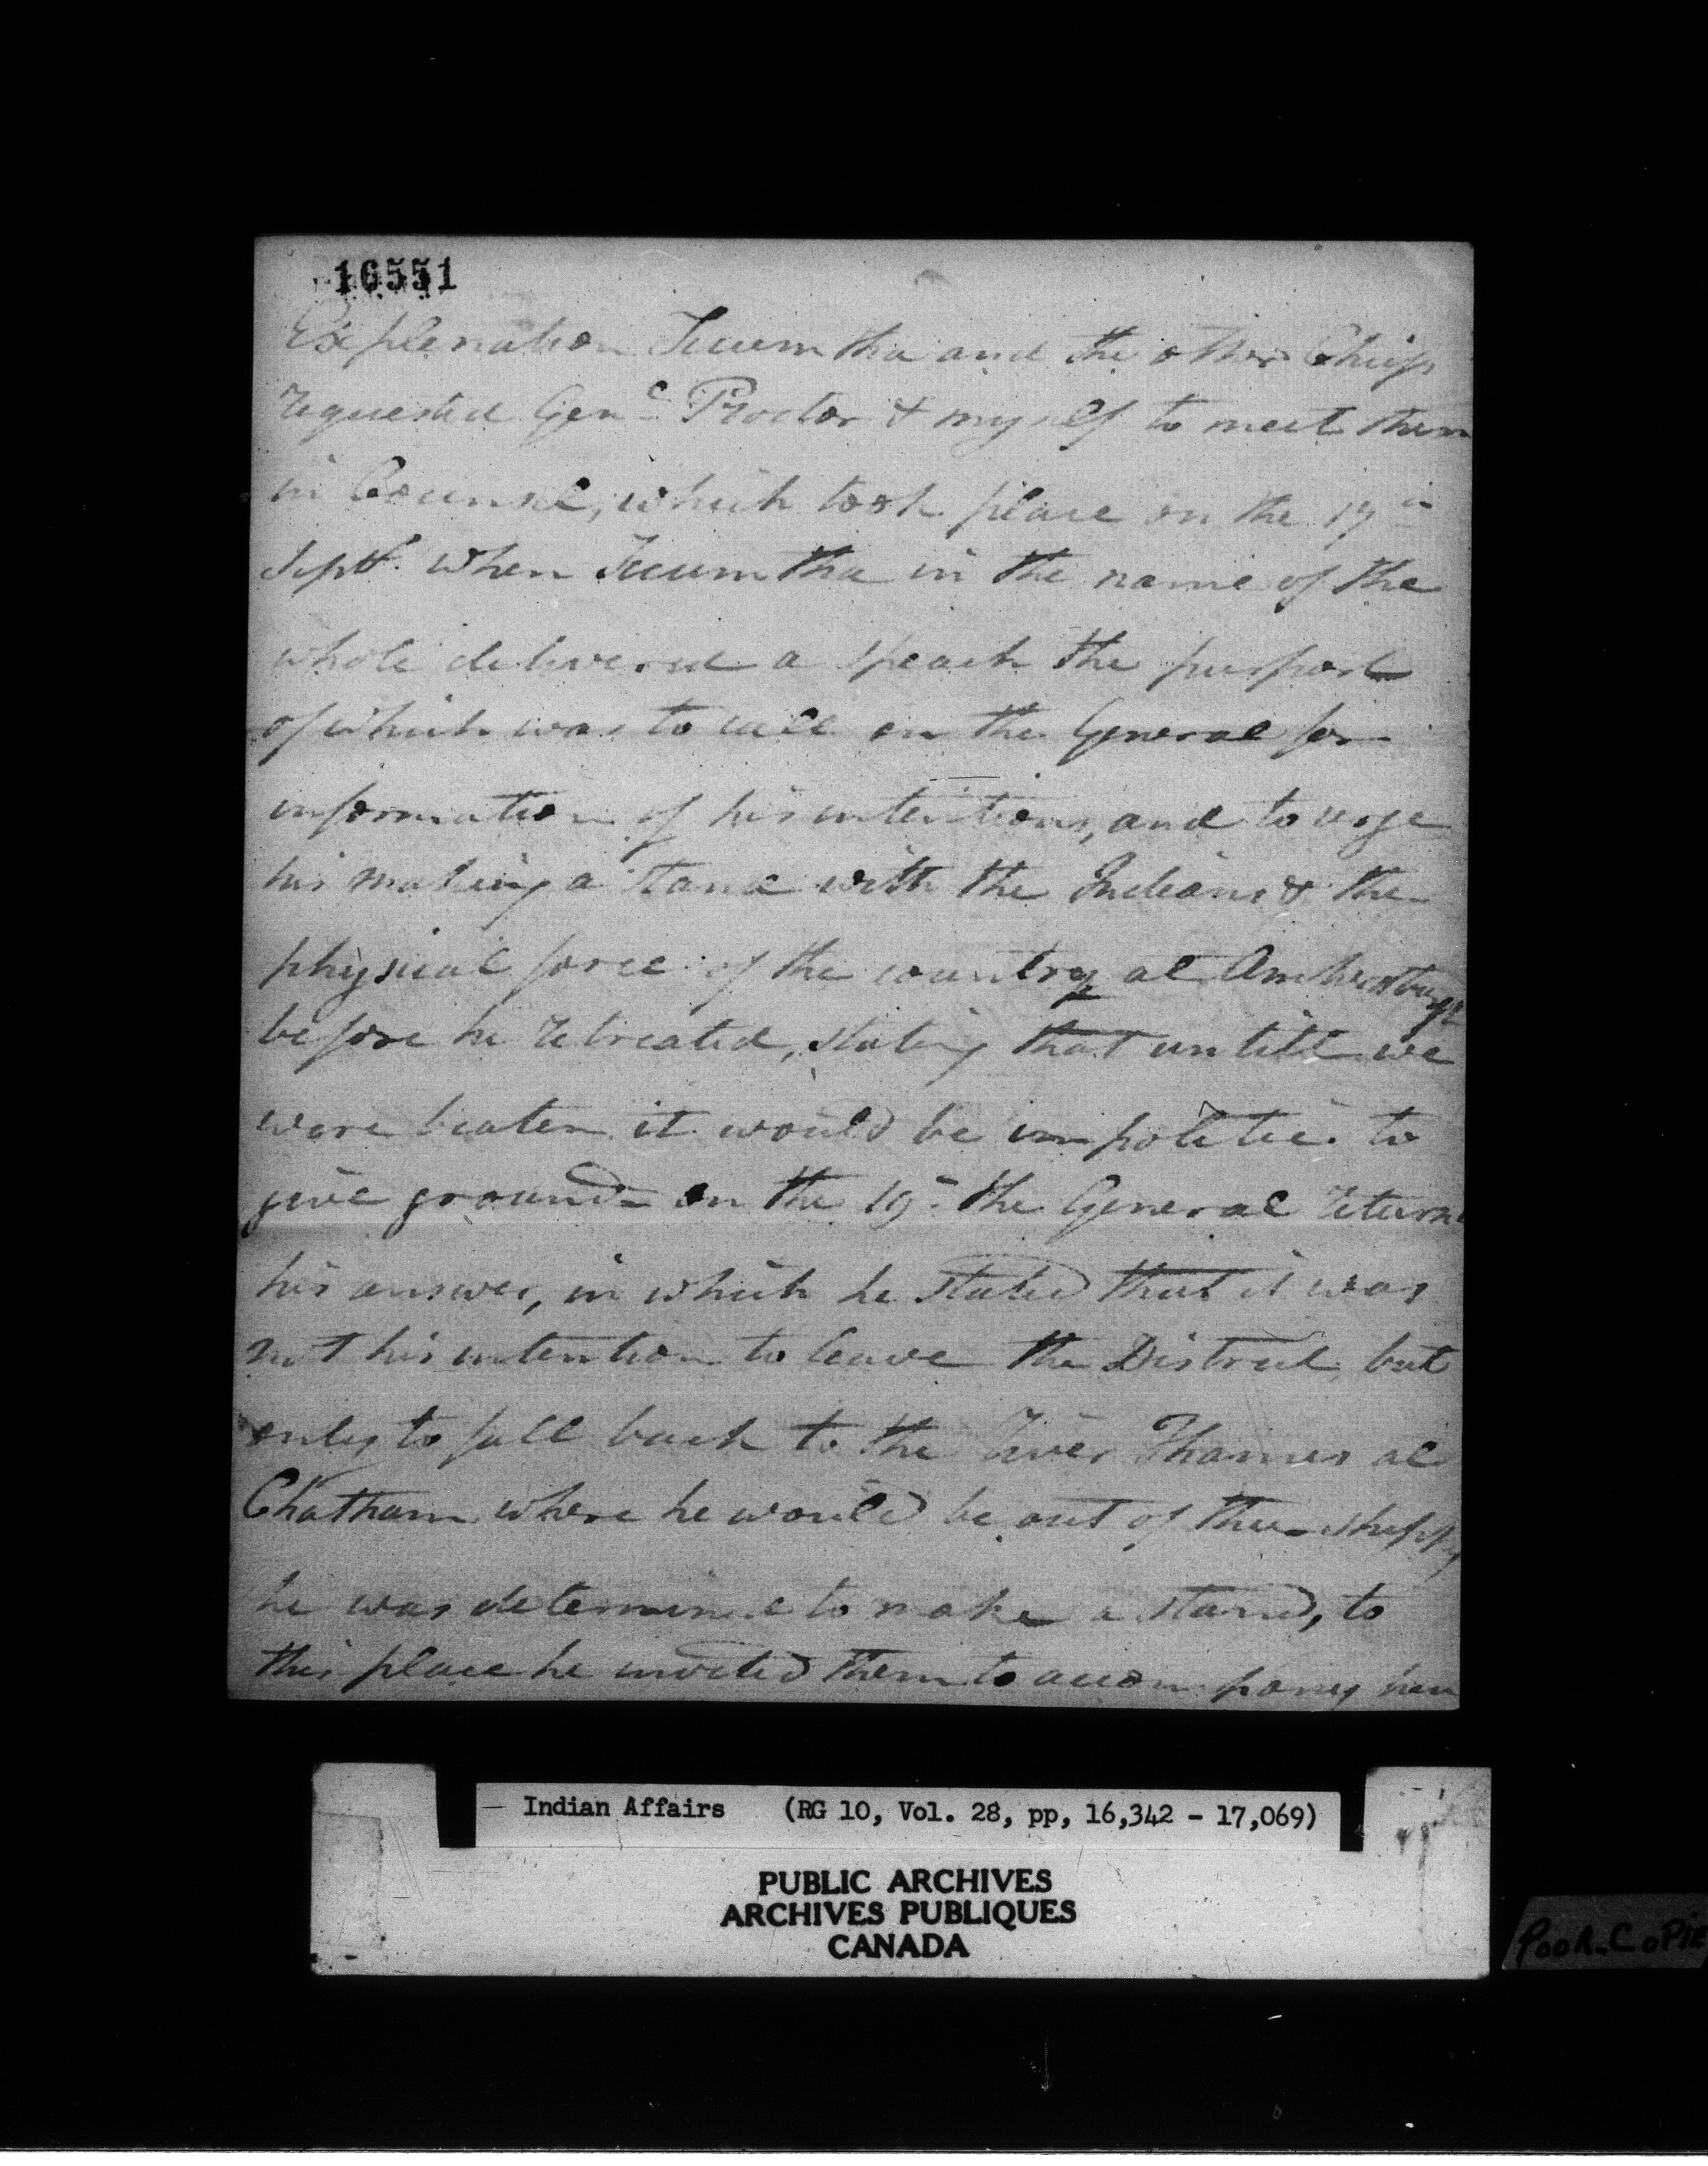 16551
Explenation Tecumtha and the other Chiefs
requested Genl Proctor & myself to meet them
in Counsel, which took place on the 17th
Sept. when Tecumtha in the name of the
whole delivered a speach the purport
of which was to call on the General for
information of his intentions, and to urge
his making a stand with the Indians & the
physical force of the country at Amherstburgh
before he retreated, stating that untill we
were beaten it would be impolitic to
give ground = on the 19th the General return
his answer, in which he stated that it was
not his intention to leave the District, but
only to fall back to the River Thames at
Chatham where he would be out of their shipps
he was determined to make a stand, to
this place he invited them to accompany him
Indian Affairs (RG 10, Vol. 28, pp, 16,342 - 17,069)
PUBLIC ARCHIVES
ARCHIVES PUBLIQUES
CANADA
POOR COPIE